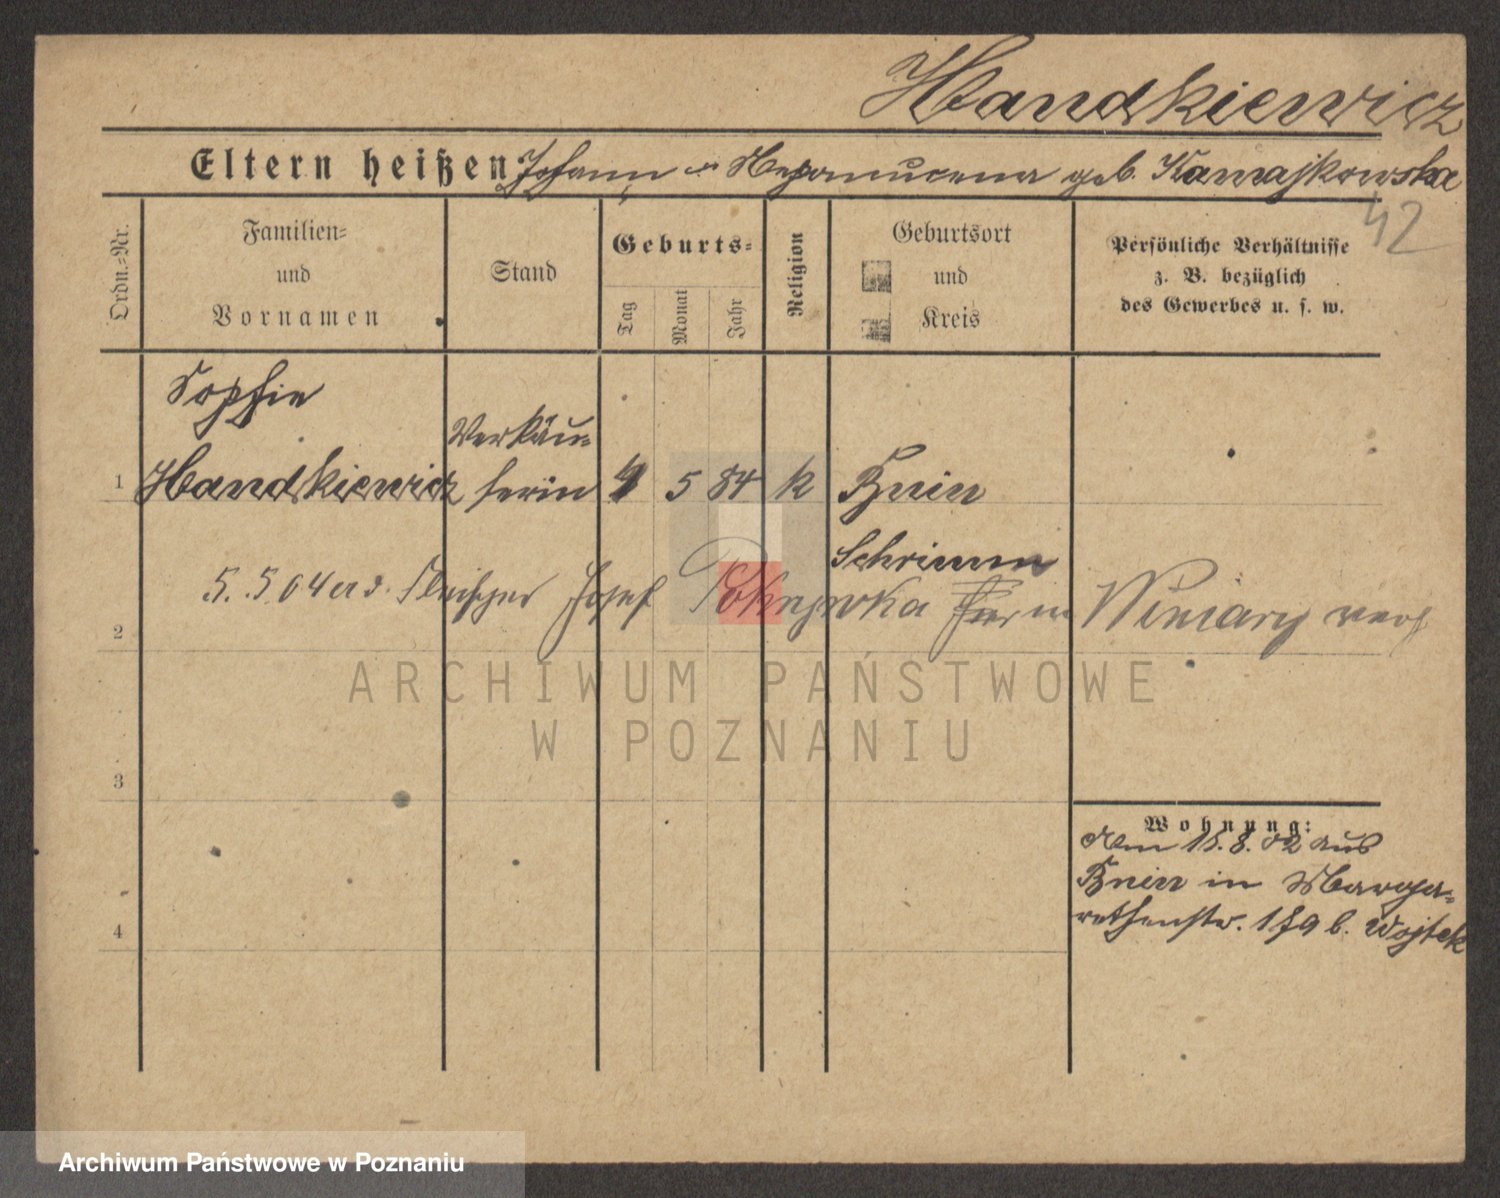 Handkiewicz
Eltern heißen Johann u Nepomucena geb. Kamajkowska
42
Ordn.=Nr.
Familien=
und
Vornamen
Stand
Geburts=
Tag
Monat
Jahr
Religion
Geburtsort
und
Kreis
Persönliche Verhältnisse
z. B. bezüglich
des Gewerbes u. s. w.
Sophie
Verkäu=
1 Handkiewicz ferin 4 5 84 k Bnin
Schrimm
5. 5 04 Fleischer Josef in Winiary
2
ARCHIWUM PAŃSTWOWE
W POZNANIU
3
Wohnung:
Am 15. 8. 02 aus
Bnin in Marga=
rethenstr. b. Wojtek
4
Archiwum Państwowe w Poznaniu